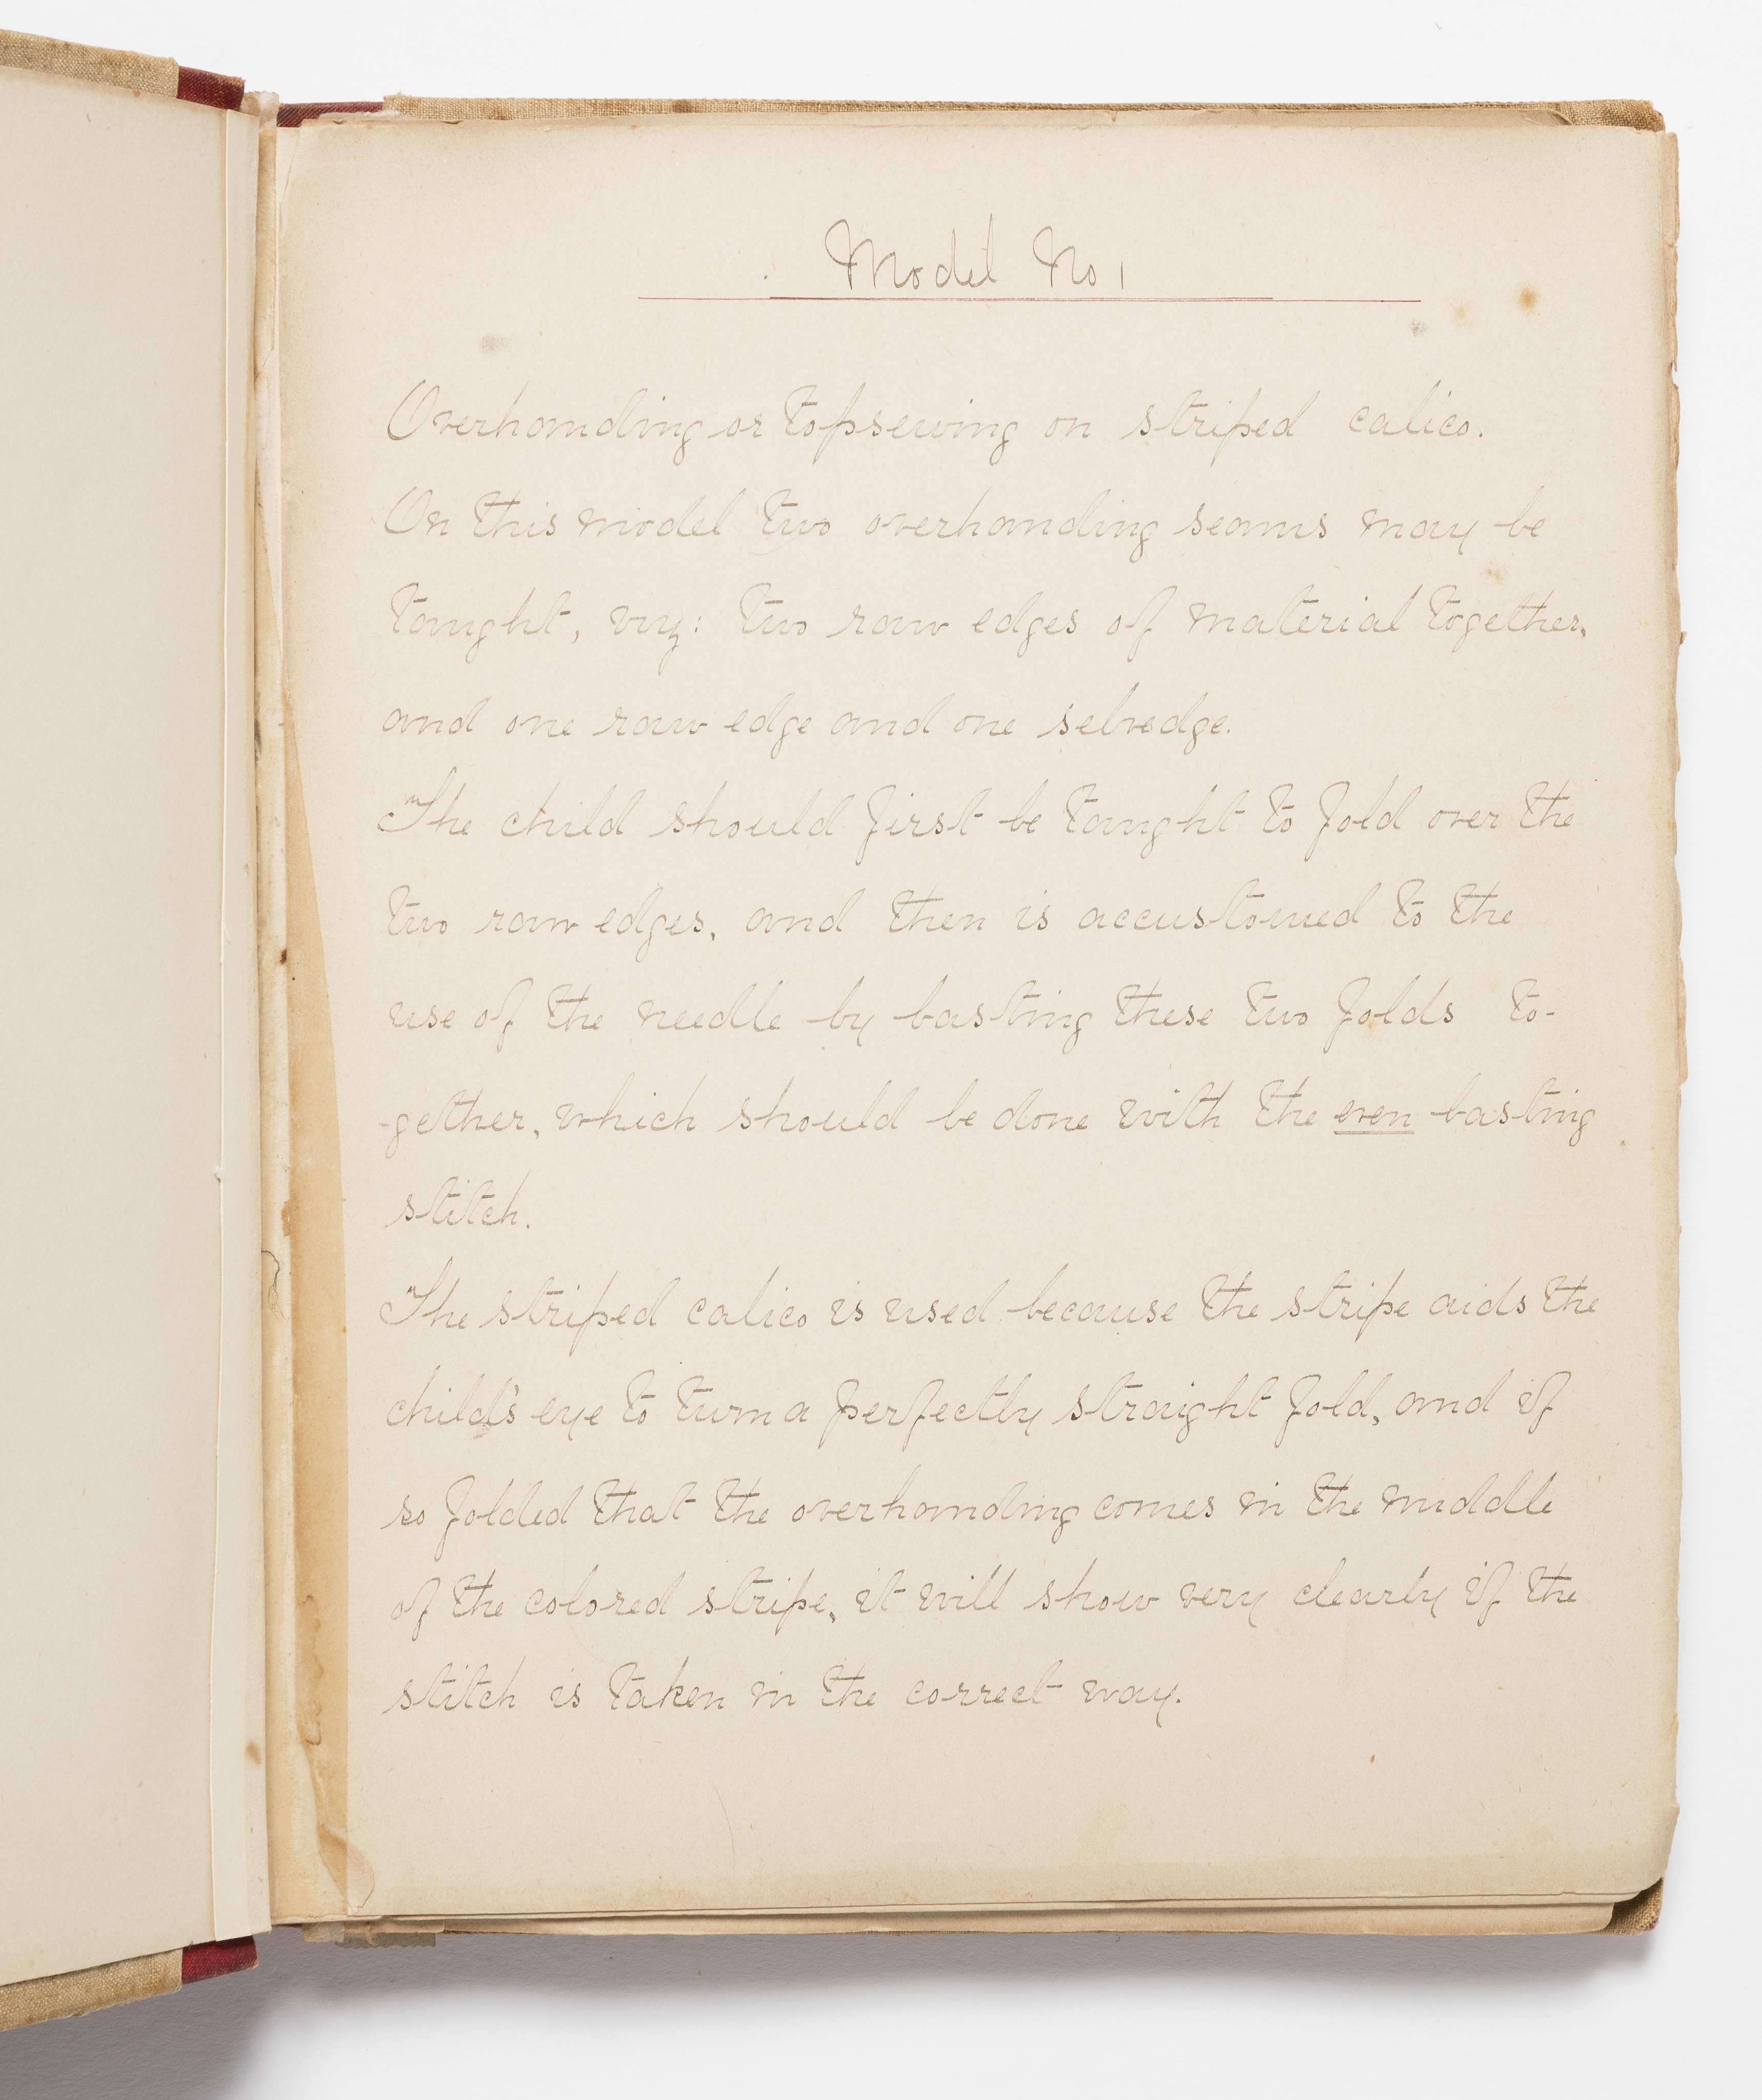 Model No 1
Overhanding or topsewing on striped calico.
On this model two overhanding seams may be
taught, viz: two raw edges of material together,
and one raw edge and one selvedge.
The child should first be taught to fold over the
two raw edges, and then is accustomed to the
use of the needle by basting these two folds to-
-gether, which should be done with the even basting
stitch.
The striped calico is used because the stripe aids the
child's eye to turn a perfectly straight fold, and if
so folded that the overhanding comes in the middle
of the colored stripe, it will show very clearly if the
stitch is taken in the correct way.